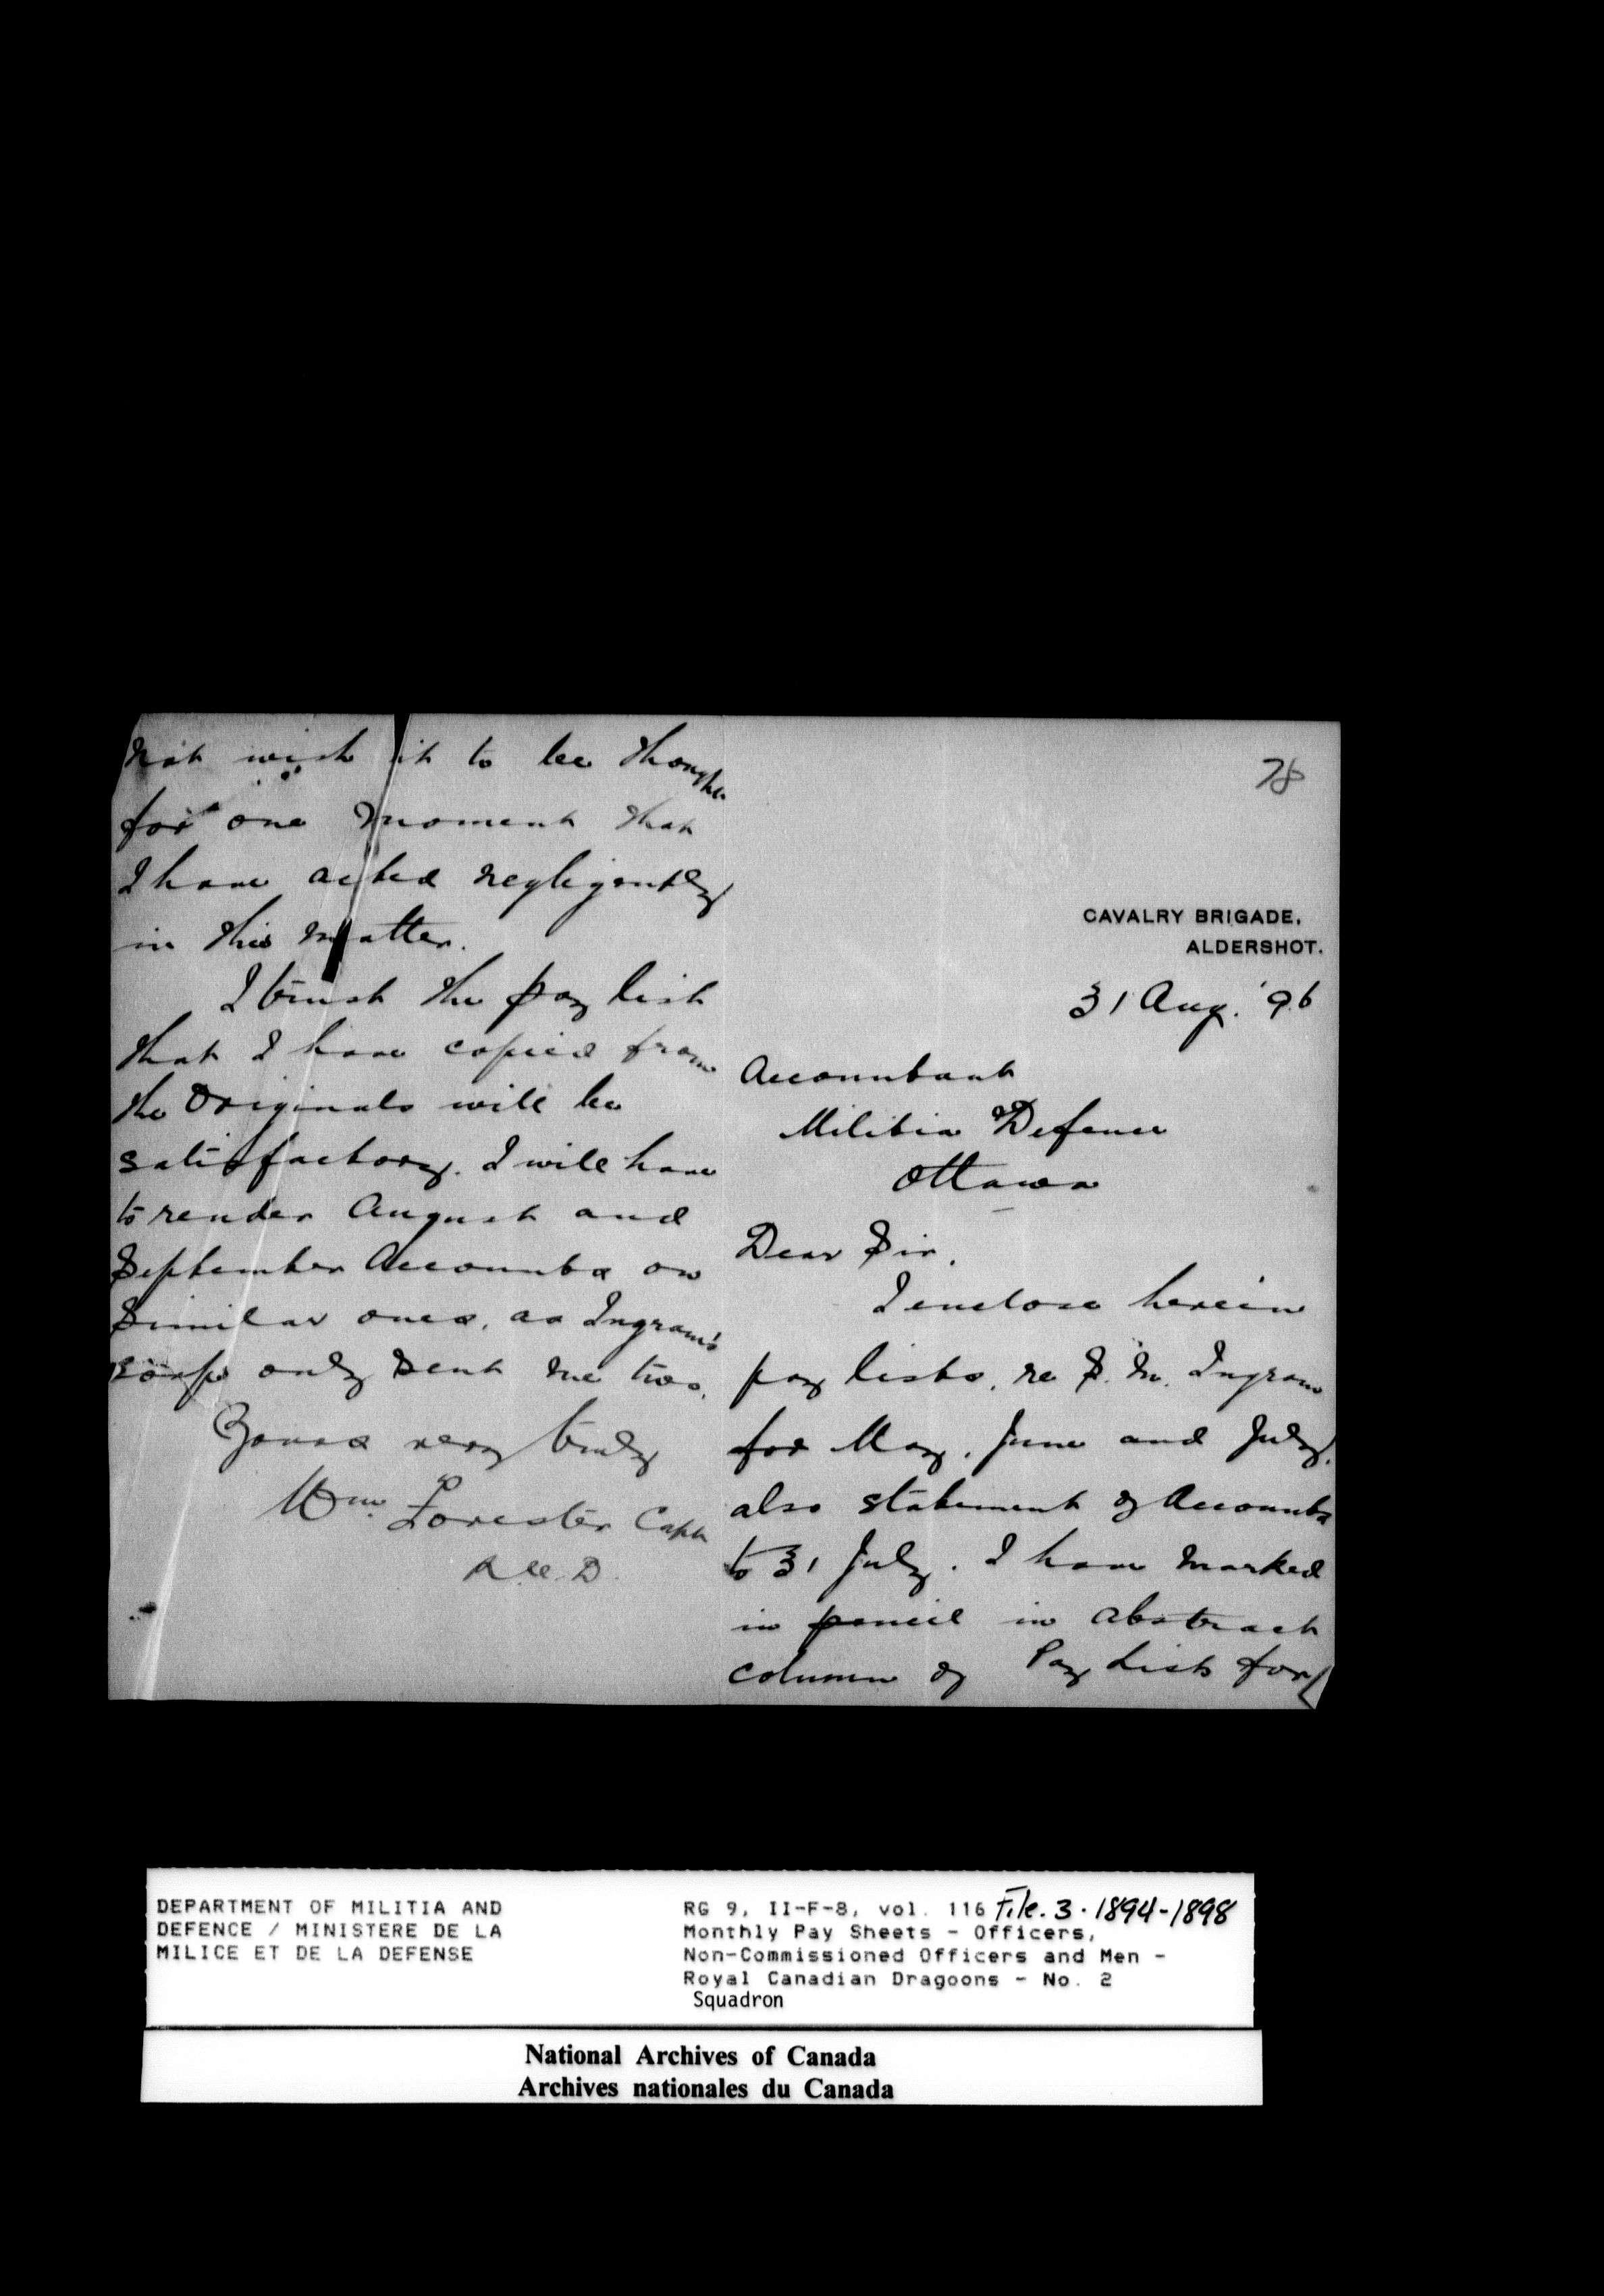 78
CAVALRY BRIGADE,
ALDERSHOT.
31 Aug. '96
Accountant
Militia & Defence
Ottawa
Dear Sir,
I enclose herein
pay lists, re S. M. Ingram
for May, June and July,
also statement of Accounts
to 31 July. I have marked
in pencil in abstract
column of Pay Lists for
not wish it to be thought
for one moment that
I have acted negligently
in this matter.
I trust the pay list
that I have copied from
the Originals will be
satisfactory. I will have
to render August and
September Accounts on
similar ones, as Ingram's
corps only sent me two.
Yours very truly
Wm. Forester Capt
R.C.D.
DEPARTMENT OF MILITIA AND
DEFENCE / MINISTERE DE LA
MILICE ET DE LA DEFENSE
RG 9, II-F-8, vol. 116 File. 3. 1894-1898
Monthly Pay Sheets - Officers,
Non-Commissioned Officers and Men -
Royal Canadian Dragoons - No. 2
Squadron
National Archives of Canada
Archives nationales du Canada